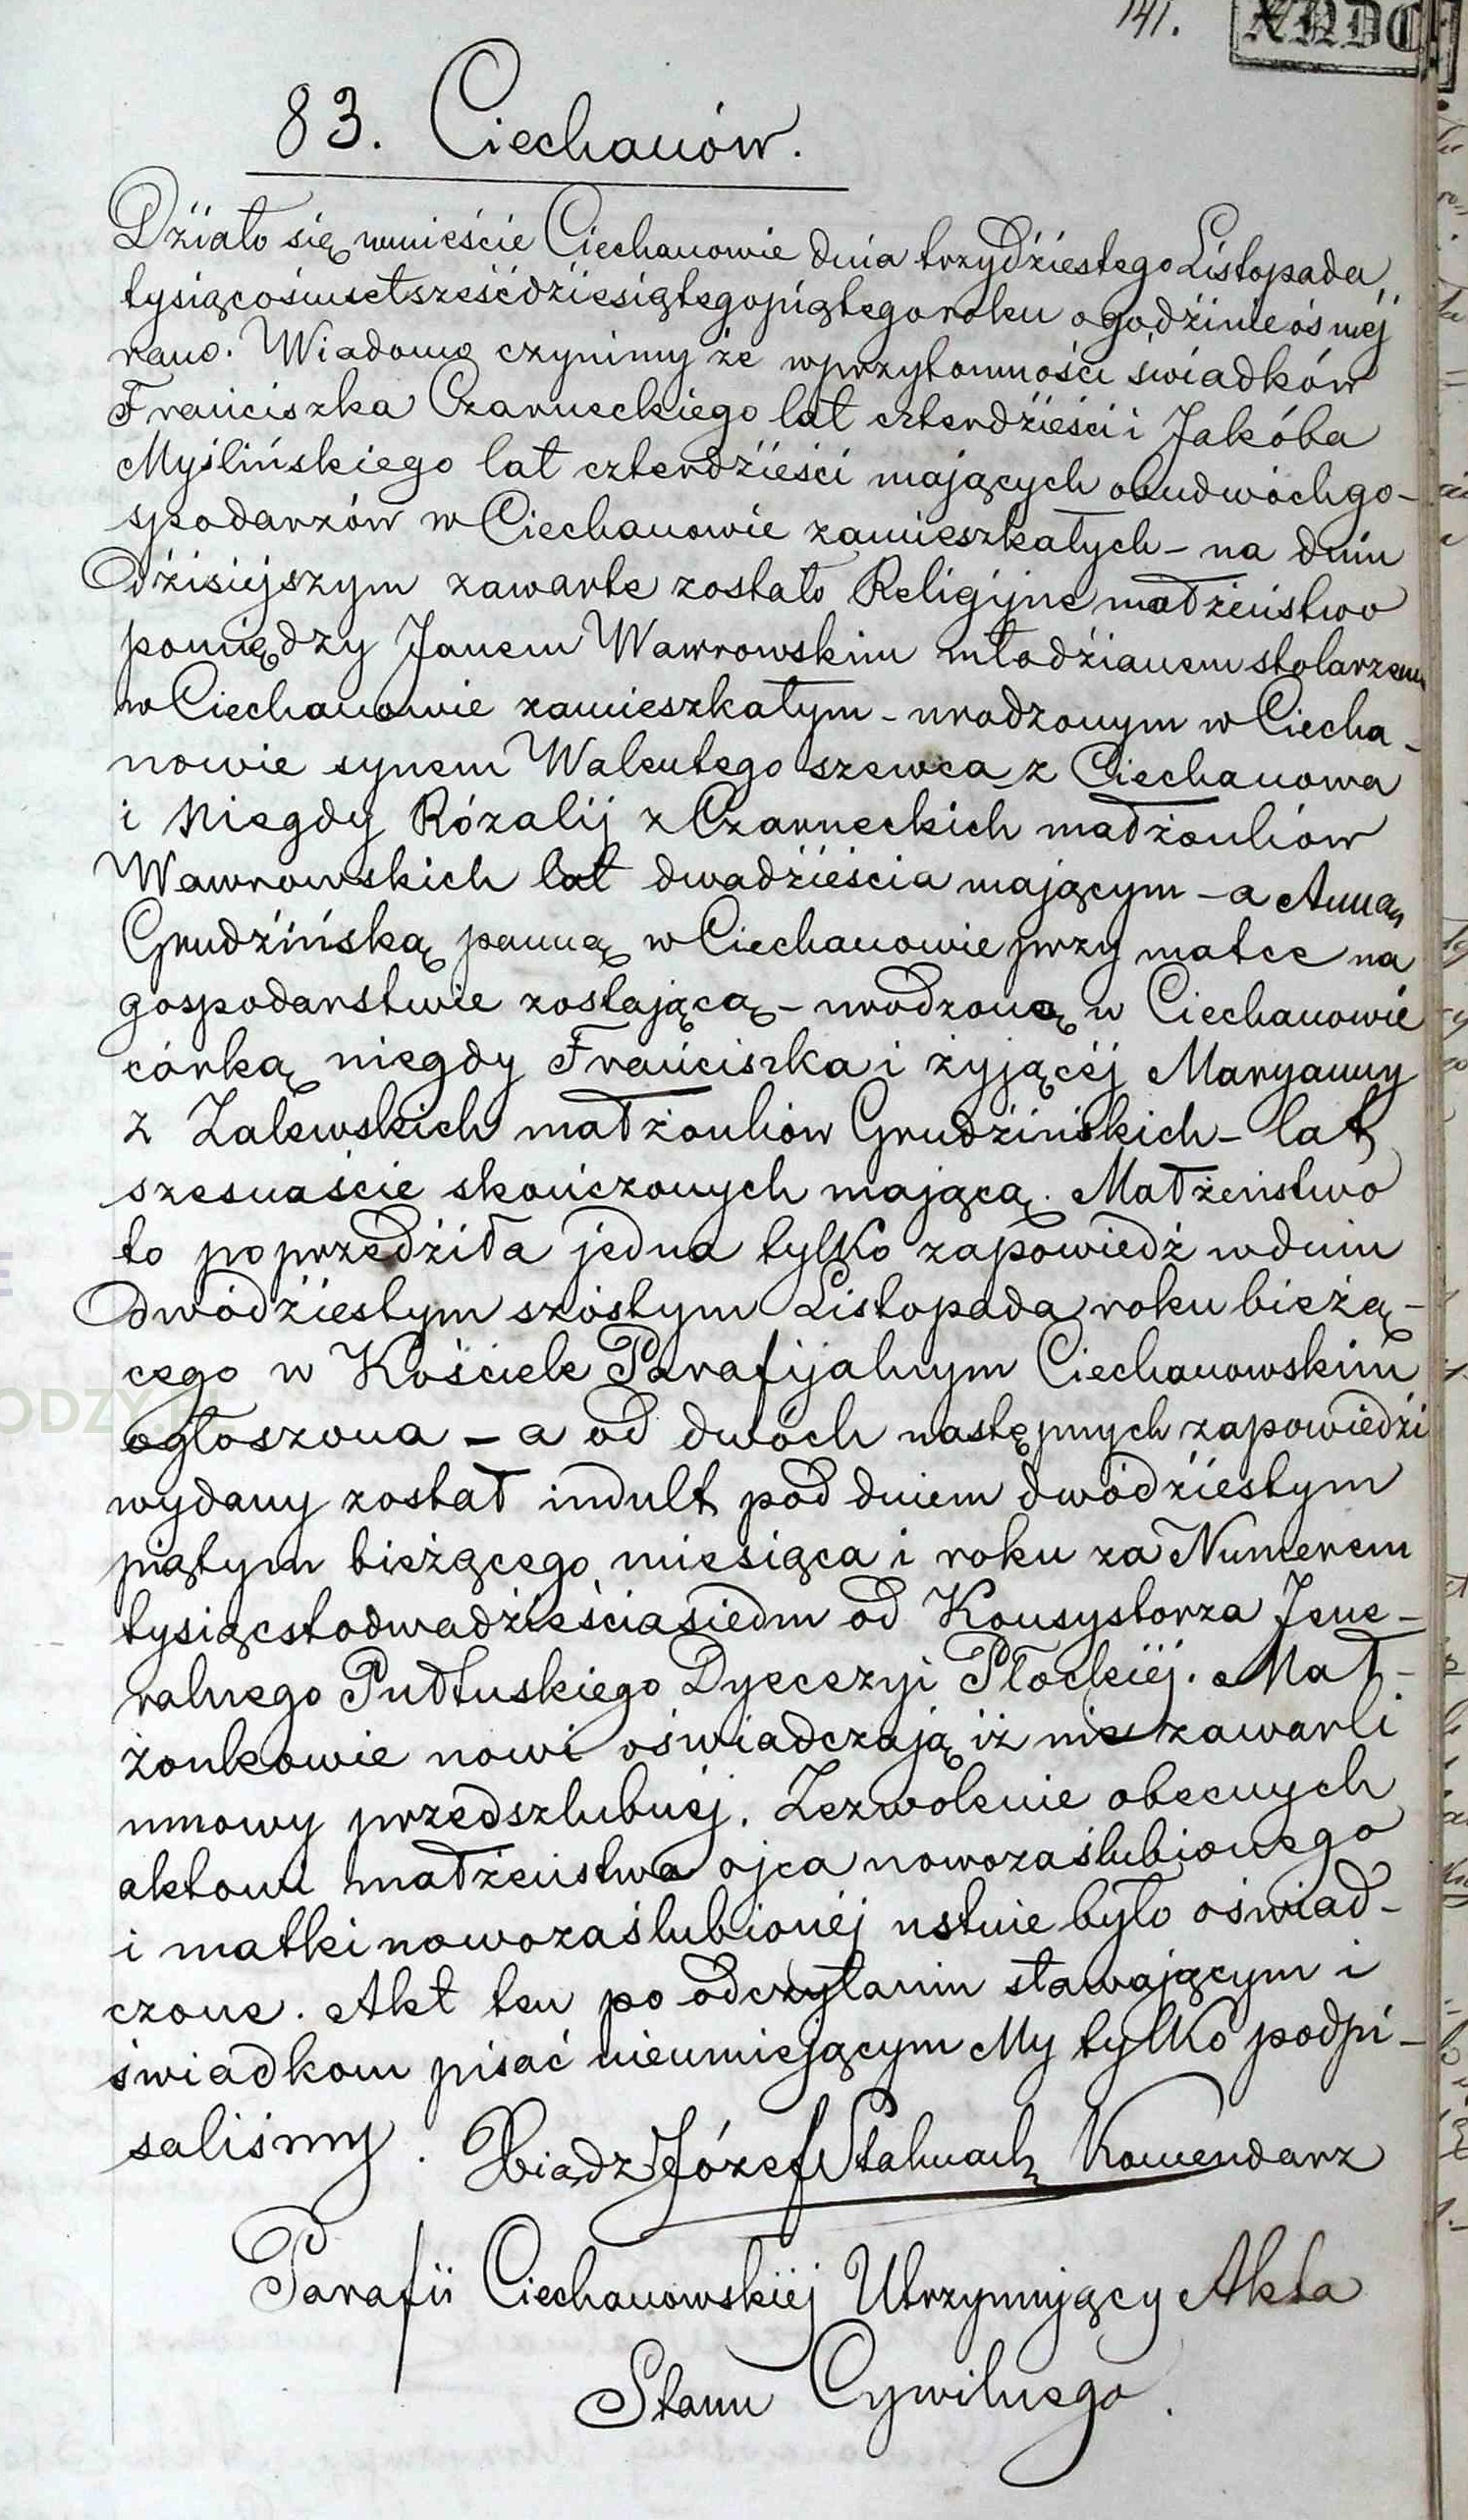 141.
83. Ciechanów.
Dźiało się wmieście Ciechanowie dnia trzydźiestego Listopada
tysiącośmsetsześćdźiesiątegopiątego roku o godźinie ósmej
rano. Wiadomo czynimy że wprzytomności świadków
Franciszka Czarneckiego lat czterdźieści i Jakóba
Myślińskiego lat czterdźieści mających obudwóch go-
spodarzów w Ciechanowie zamieszkałych - na dniu
dźisiejszym zawarte zostało Religijne małżeństwo
pomiędzy Janem Wawrowskim młodźianem stolarzem
w Ciechanowie zamieszkałym - urodzonym w Ciecha-
nowie synem Walentego szewca z Ciechanowa
i Niegdy Rózalij z Czarneckich małżonków
Wawrowskich lat dwadźieścia mającym - a Anną
Grudźińską panną w Ciechanowie przy matce na
gospodarstwie zostającą - urodzoną w Ciechanowie
córką niegdy Franciszka i żyjącéj Maryanny
z Zalewskich małżonków Grudźińskich - lat
szesnaście skończonych mającą. Małżeństwo
to poprzedźiła jedna tylko zapowiedź w dniu
dwódźiestym szóstym Listopada roku bieżą-
cego w Kościele Parafijalnym Ciechanowskim
ogłoszona - a od dwóch następnych zapowiedźi
wydany został indult pod dniem dwódźiestym
piątym bieżącego miesiąca i roku za Numerem
tysiącstodwadźieściasiedm od Konsystorza Jene-
ralnego Pułtuskiego Dyecezyi Płockiéj. Mał-
żonkowie nowi oświadczają iż nie zawarli
umowy przedszlubnéj. Zezwolenie obecnych
aktowi małżeństwa ojca nowozaślubionego
i matki nowozaślubionéj ustnie było oświad-
czone. Akt ten po odczytaniu stawającym i
świadkom pisać nieumiejącym My tylko podpi-
saliśmy. Xiądz Józef Komendarz
Parafii Ciechanowskiéj Utrzymujący Akta
Stanu Cywilnego.